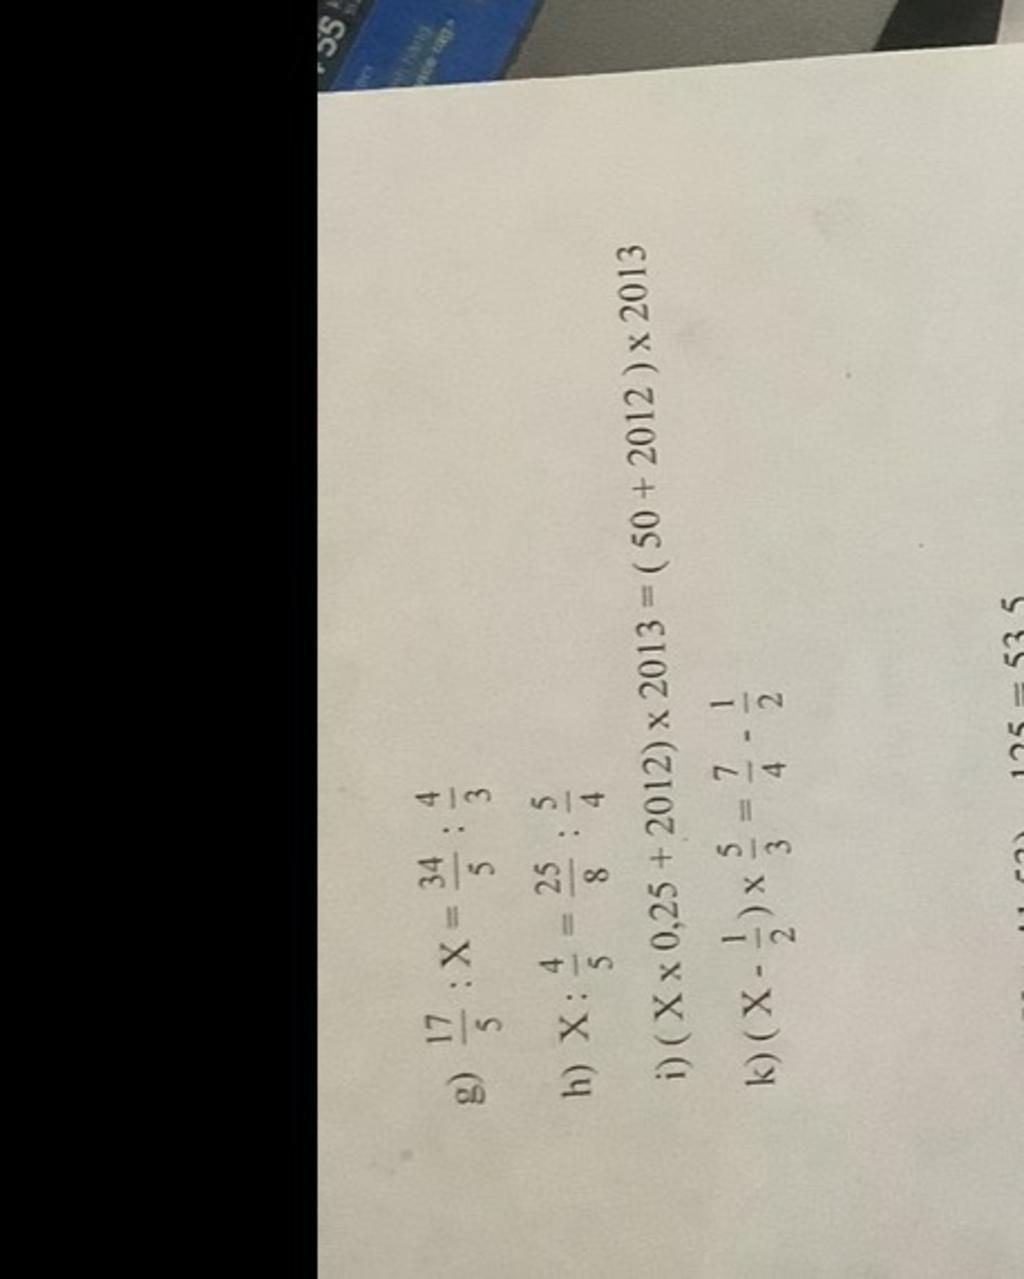 g) 17/5 : X = 34/5 : 4/3
h) X : 4/5 = 25/8 : 5/4
i) ( X x 0,25 + 2012) x 2013 = ( 50 + 2012 ) x 2013
k) ( X - 1/2 ) x 5/3 = 7/4 - 1/2
125 = 53,5